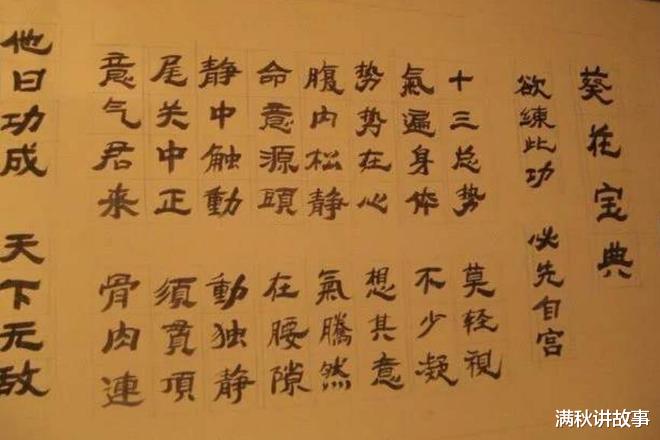 葵花宝典
欲練此功 必先自宫
十三总势 莫轻視
氣遍身体 不少凝
势势在心 想其意
腹内松静 氣騰然
命意源頭 在腰隙
静中触動 動独静
尾关中正 須貫頂
意气君来 骨肉連
他日功成 天下无敌
满秋讲故事